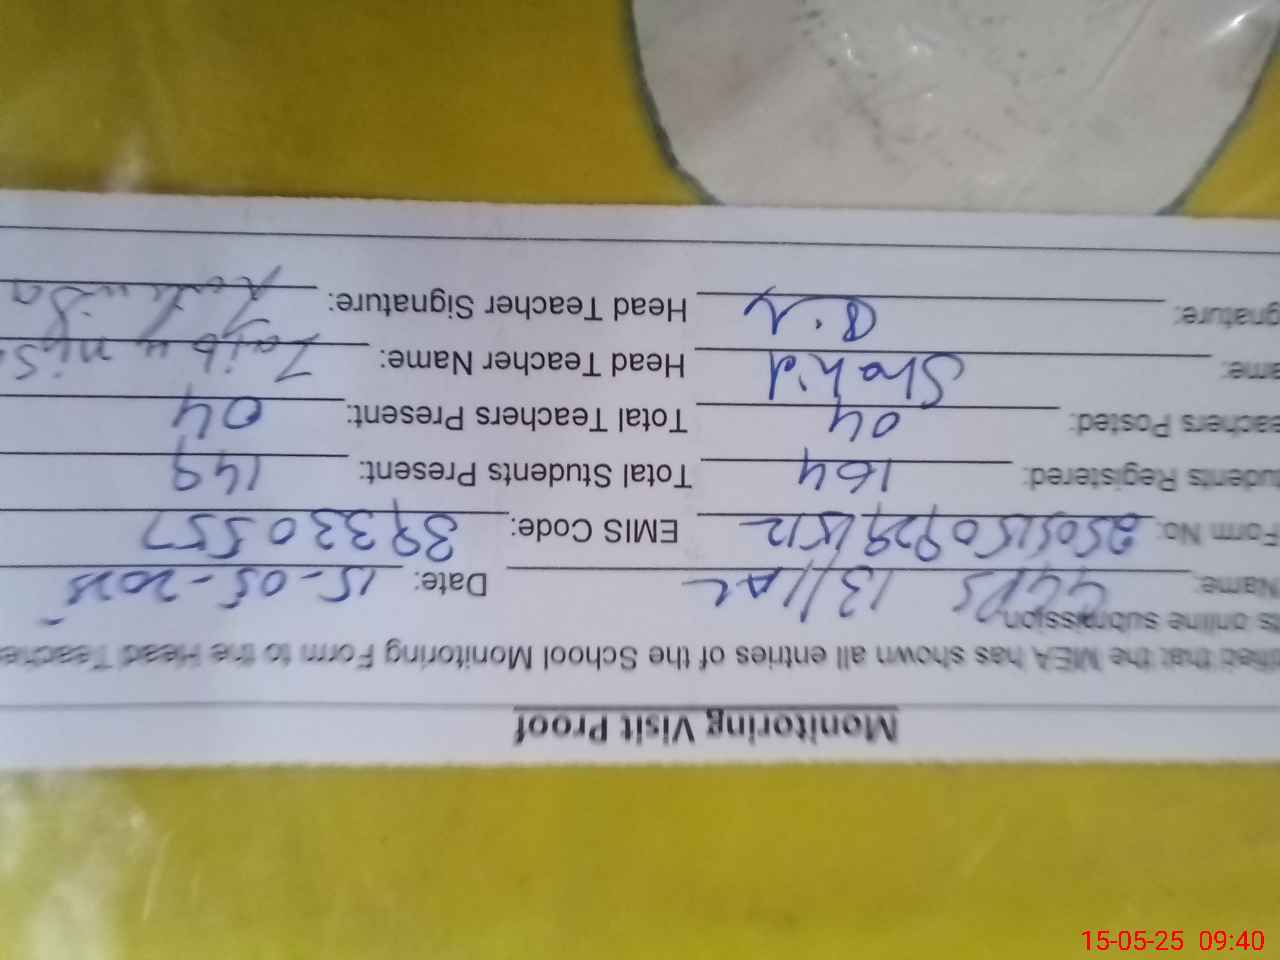 Monitoring Visit Proof
that the MEA has shown all entries of the School Monitoring Form to the Head Teacher
online submission
Name: GGPS 13/11 AL Date: 15-05-2025
Form No: EMIS Code: 39330557
Students Registered: 164 Total Students Present: 149
Teachers Posted: 04 Total Teachers Present: 04
Name: Shahid Head Teacher Name: Zaib u nisa
Signature: Head Teacher Signature:
15-05-25 09:40